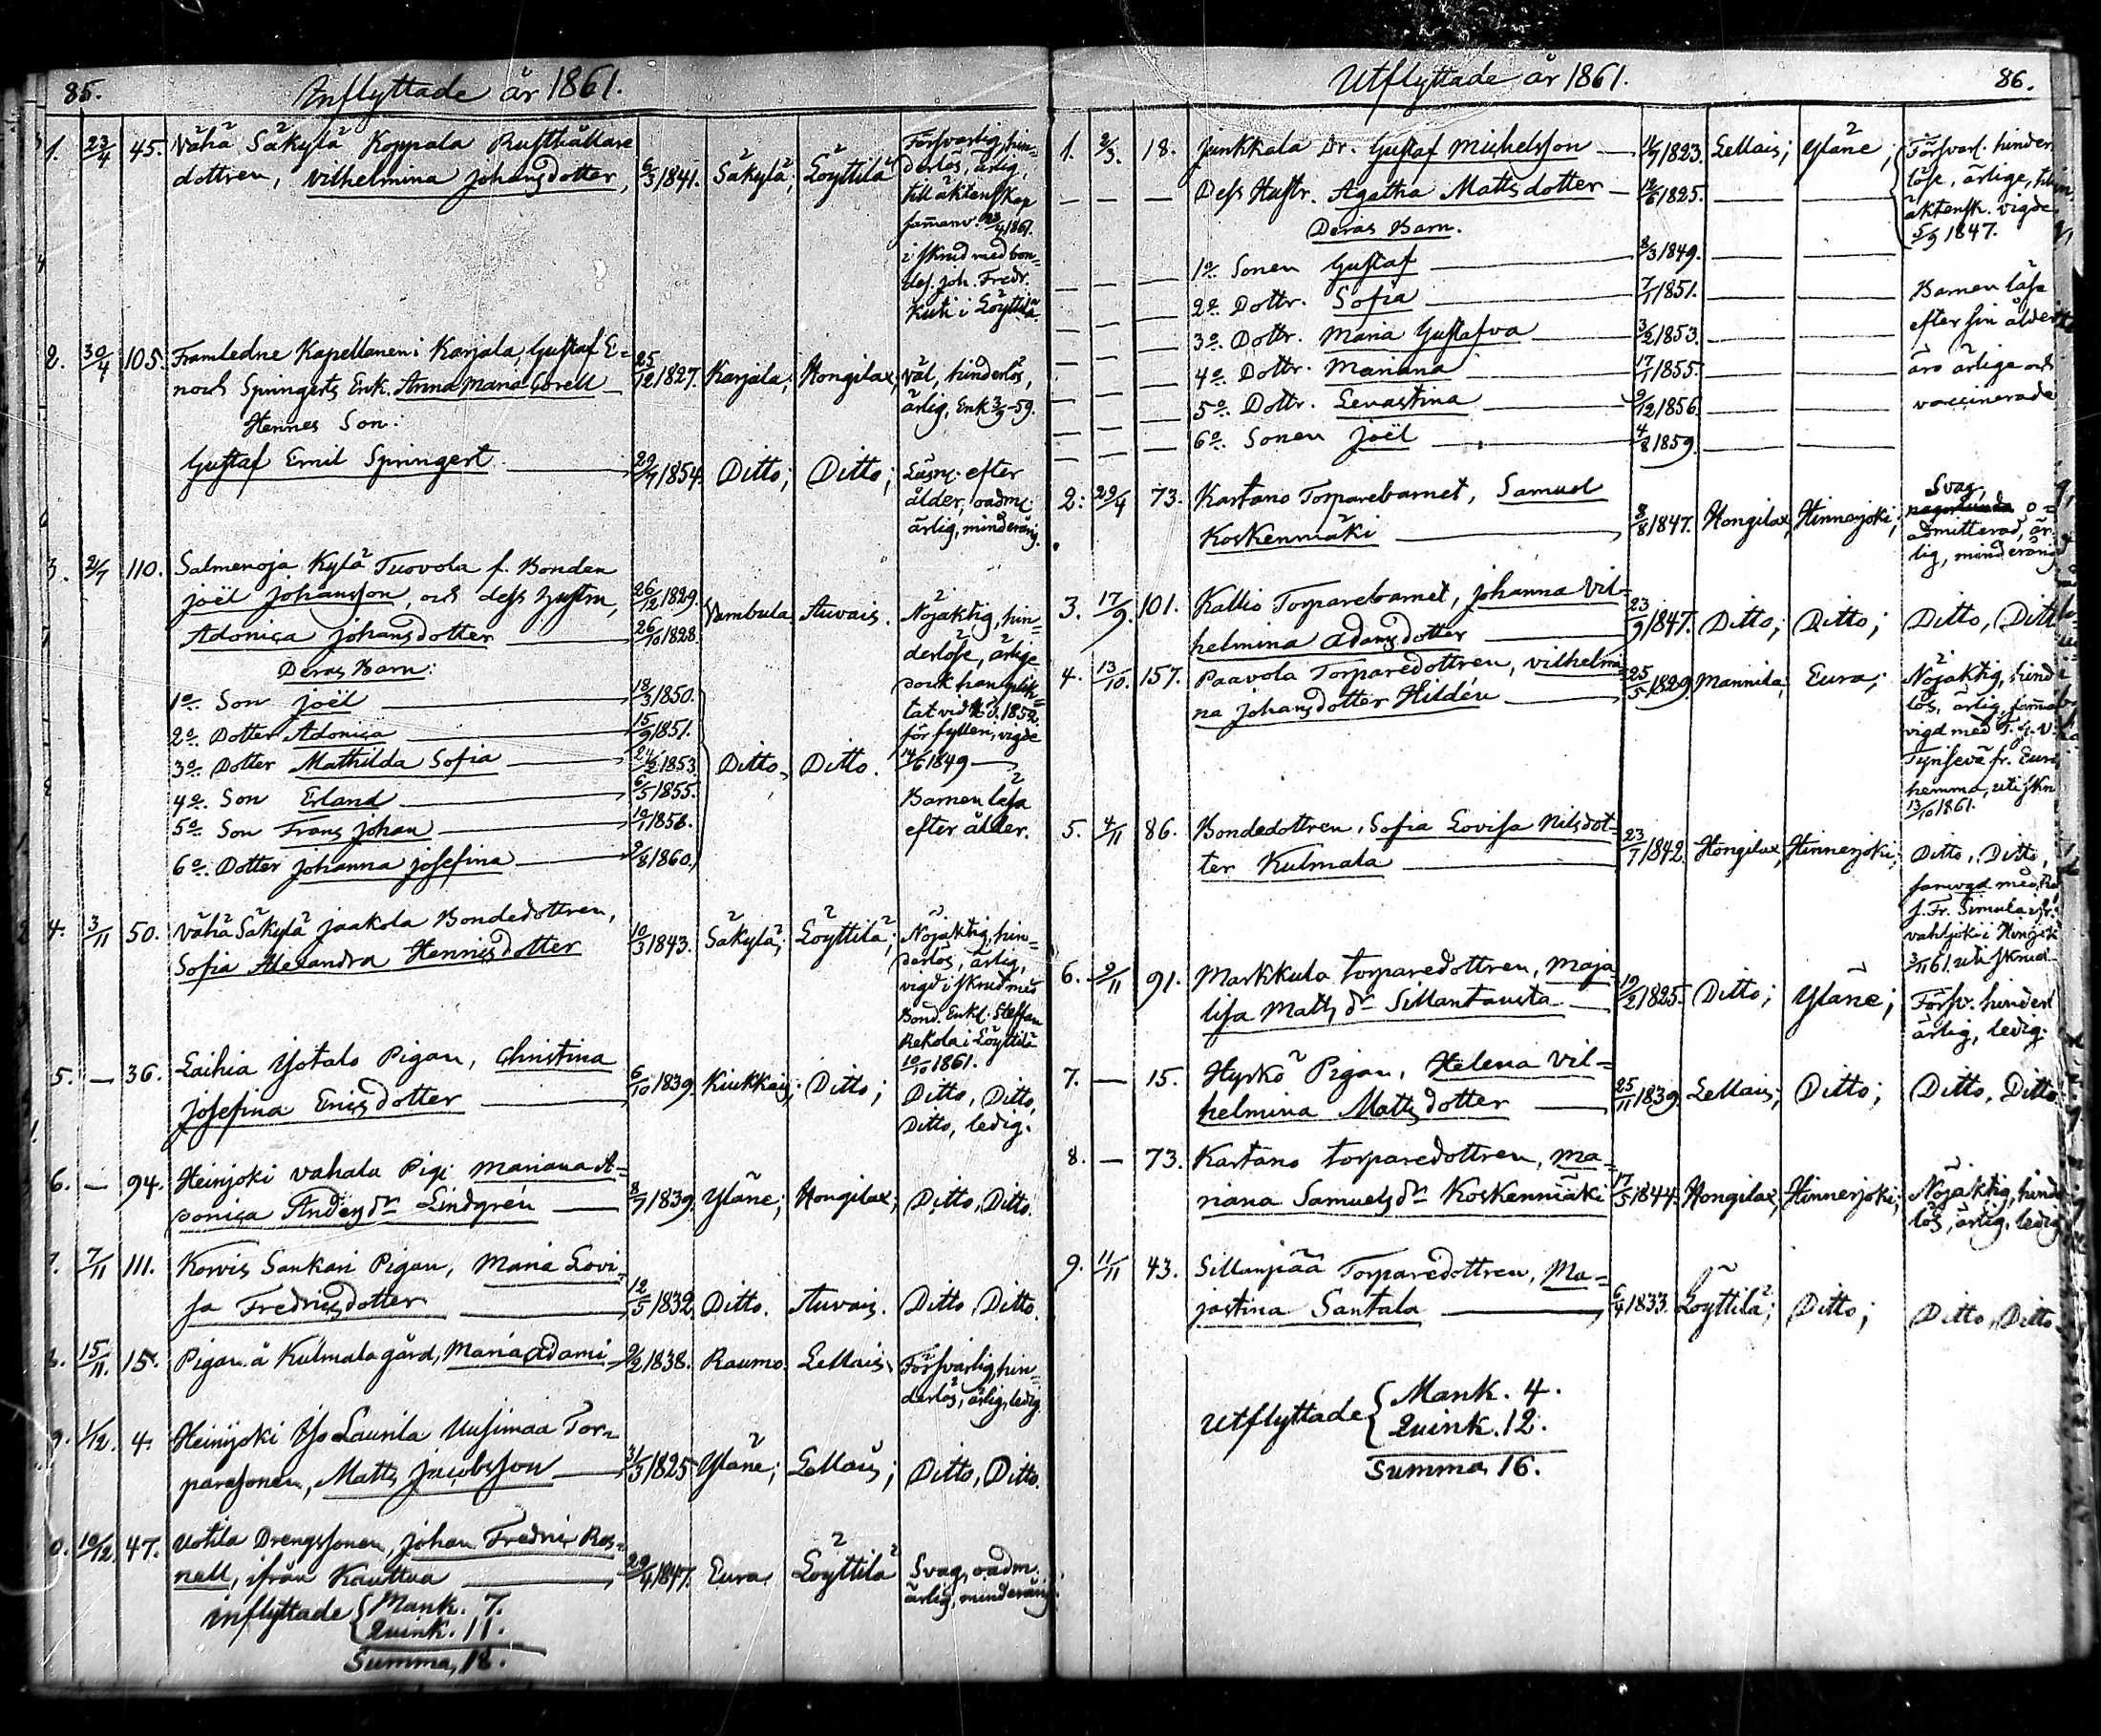 85.
Inflyttade år 1861.
1. 23/4 45. Vähä Säkylä Koppala Rusthållare
dottren, Vilhelmina Johansdotter, 6/3 1841. Säkylä; Löyttilä
Försvarlig, hin=
derlös, ärlig,
till äktenskap
sam̄anv. 23/4 1861.
i skrud med bon=
des. Joh. Fredr.
Kuti i Löyttilä.
2. 30/4 105. Framledne Kapellanen i Karjala, Gustaf E=
noch Springerts Enk. Anna Maria Corell 25/12 1827. Karjala; Hongilax;
Väl, hinderlös,
ärlig, Enk. 3/3-59.
Hennes Son:
Gustaf Emil Springert 29/7 1854. Ditto; Ditto;
Läsn. efter
ålder, oadm.
ärlig, minderårig.
3. 2/7 110. Salmenoja Kylä Tuovola f. Bonden
Joël Johansson, och dess hustru, 26/12 1829.
Adoniça Johansdotter 26/10 1828. Vambula Auvais.
Nöjaktig, hin=
derlöse, ärlige
dock han plik=
tat vid H.T. 1852.
för fylleri, vigde
14/6 1849
Deras Barn:
1o. Son Joël 18/3 1850.
2o. Dotter Adoniça 15/9 1851.
3o. Dotter Mathilda Sofia 24/2 1853. Ditto, Ditto.
4o. Son Erland 6/5 1855.
5o. Son Frans Johan 10/1 1858.
6o. Dotter Johanna Josefina 9/8 1860.
Barnen läsa
efter ålder.
4. 3/11 50. Vähä Säkylä Jaakola Bondedottren,
Sofia Alexandra Henrisdotter 10/3 1843. Säkylä; Löyttilä;
Nöjaktig, hin=
derlös, ärlig,
vigd i skrud med
Bond. Enkl. Steffan
Rekola i Löyttilä
10/10 1861.
5. — 36. Laihia Yotalo Pigan, Christina
Josefina Ericsdotter 6/10 1839. Kiukkais; Ditto;
Ditto, Ditto,
Ditto, ledig.
6. — 94. Heinjoki Vahala Pig. Mariana A=
doniça Anders dr Lindgrén 8/7 1839. Yläne; Hongilax; Ditto, Ditto.
7. 7/11 111. Korvis Sankari Pigan, Maria Lovi=
sa Fredricsdotter 12/5 1832. Ditto. Auvais. Ditto, Ditto.
8. 15/11. 15. Pigan å Kulmala gård, Maria Adami 9/2 1838. Raumo. Lellais.
Försvarlig, hin=
derlös, ärlig, ledig.
9. 1/12. 4. Heinjoki Yso Laurila Uusimaa Tor=
paresonen, Matts Jacobsson 31/3 1825 Yläne; Lellais; Ditto, Ditto.
0. 10/12. 47. Uotila Drengssonen, Johan Fredric Ros=
nell, ifrån Kauttua 29/4 1847. Eura. Löyttilä
Svag, oadm.
ärlig, minderårig.
inflyttade { Mank. 7.
Quink. 11.
Summa, 18.
Utflyttade år 1861.
86.
1. 2/3. 18. Junkkala Dr. Gustaf Michelsson 14/9 1823. Lellais; Yläne;
— — — Dess Hustr. Agatha Mattsdotter 12/6 1825.
Försvarl. hinder
löse, ärlige, till
äktensk. vigde
5/9 1847.
Deras Barn.
1o. Sonen Gustaf 8/3 1849.
2o. Dottr. Sofia 7/1 1851.
3o. Dottr. Maria Gustafva 3/2 1853.
4o. Dottr. Mariana 17/1 1855.
5o. Dottr. Levastina 9/12 1856.
6o. Sonen Joël 4/8 1859.
Barnen läsa
efter sin ålder
äro ärlige och
vaccinerade
2. 29/4 73. Kartano Torparebarnet, Samuel
Koskenmäki 8/8 1847. Hongilax, Hinnerjoki;
Svag,
o=
admitterad, är=
lig, minderårig
3. 17/9. 101. Kallio Torparebarnet, Johanna Vil=
helmina Adamsdotter 23/9 1847. Ditto; Ditto; Ditto, Ditto
4. 13/10. 157. Paavola Torparedottren, Vilhelmi=
na Johansdotter Hildén 25/5 1829. Mannila, Eura;
Nöjaktig, hind
lös, ärlig, sam̄an
vigd med T. G. V.
Tynsevä fr. Eura
hemma, uti skru
13/10 1861.
5. 4/11 86. Bondedottren, Sofia Lovisa Nilsdot=
ter Kulmala 23/7 1842. Hongilax, Hinnerjoki;
Ditto, Ditto,
samvgd med
J. Fr. Simula ifr.
Vahljoki i Honjoki
3/11 61. uti skrud
6. 9/11 91. Markkula torparedottren, Maja
lisa Matts dr Sillantausta 19/2 1825. Ditto; Yläne;
Försv. hinderl
ärlig, ledig.
7. — 15. Hyrkö Pigan, Helena Vil=
helmina Mattsdotter 25/11 1839. Lellais; Ditto; Ditto, Ditto
8. — 73. Kartano torparedottren, Ma=
riana Samuels dr Koskenmäki 17/5 1844. Hongilax, Hinnerjoki;
Nöjaktig, hinde
lös, ärlig, ledig
9. 11/11 43. Sillanpää Torparedottren, Ma=
jastina Santala 6/4 1833. Löyttilä; Ditto; Ditto, Ditto
Utflyttade { Mank. 4.
Quink. 12.
Summa 16.